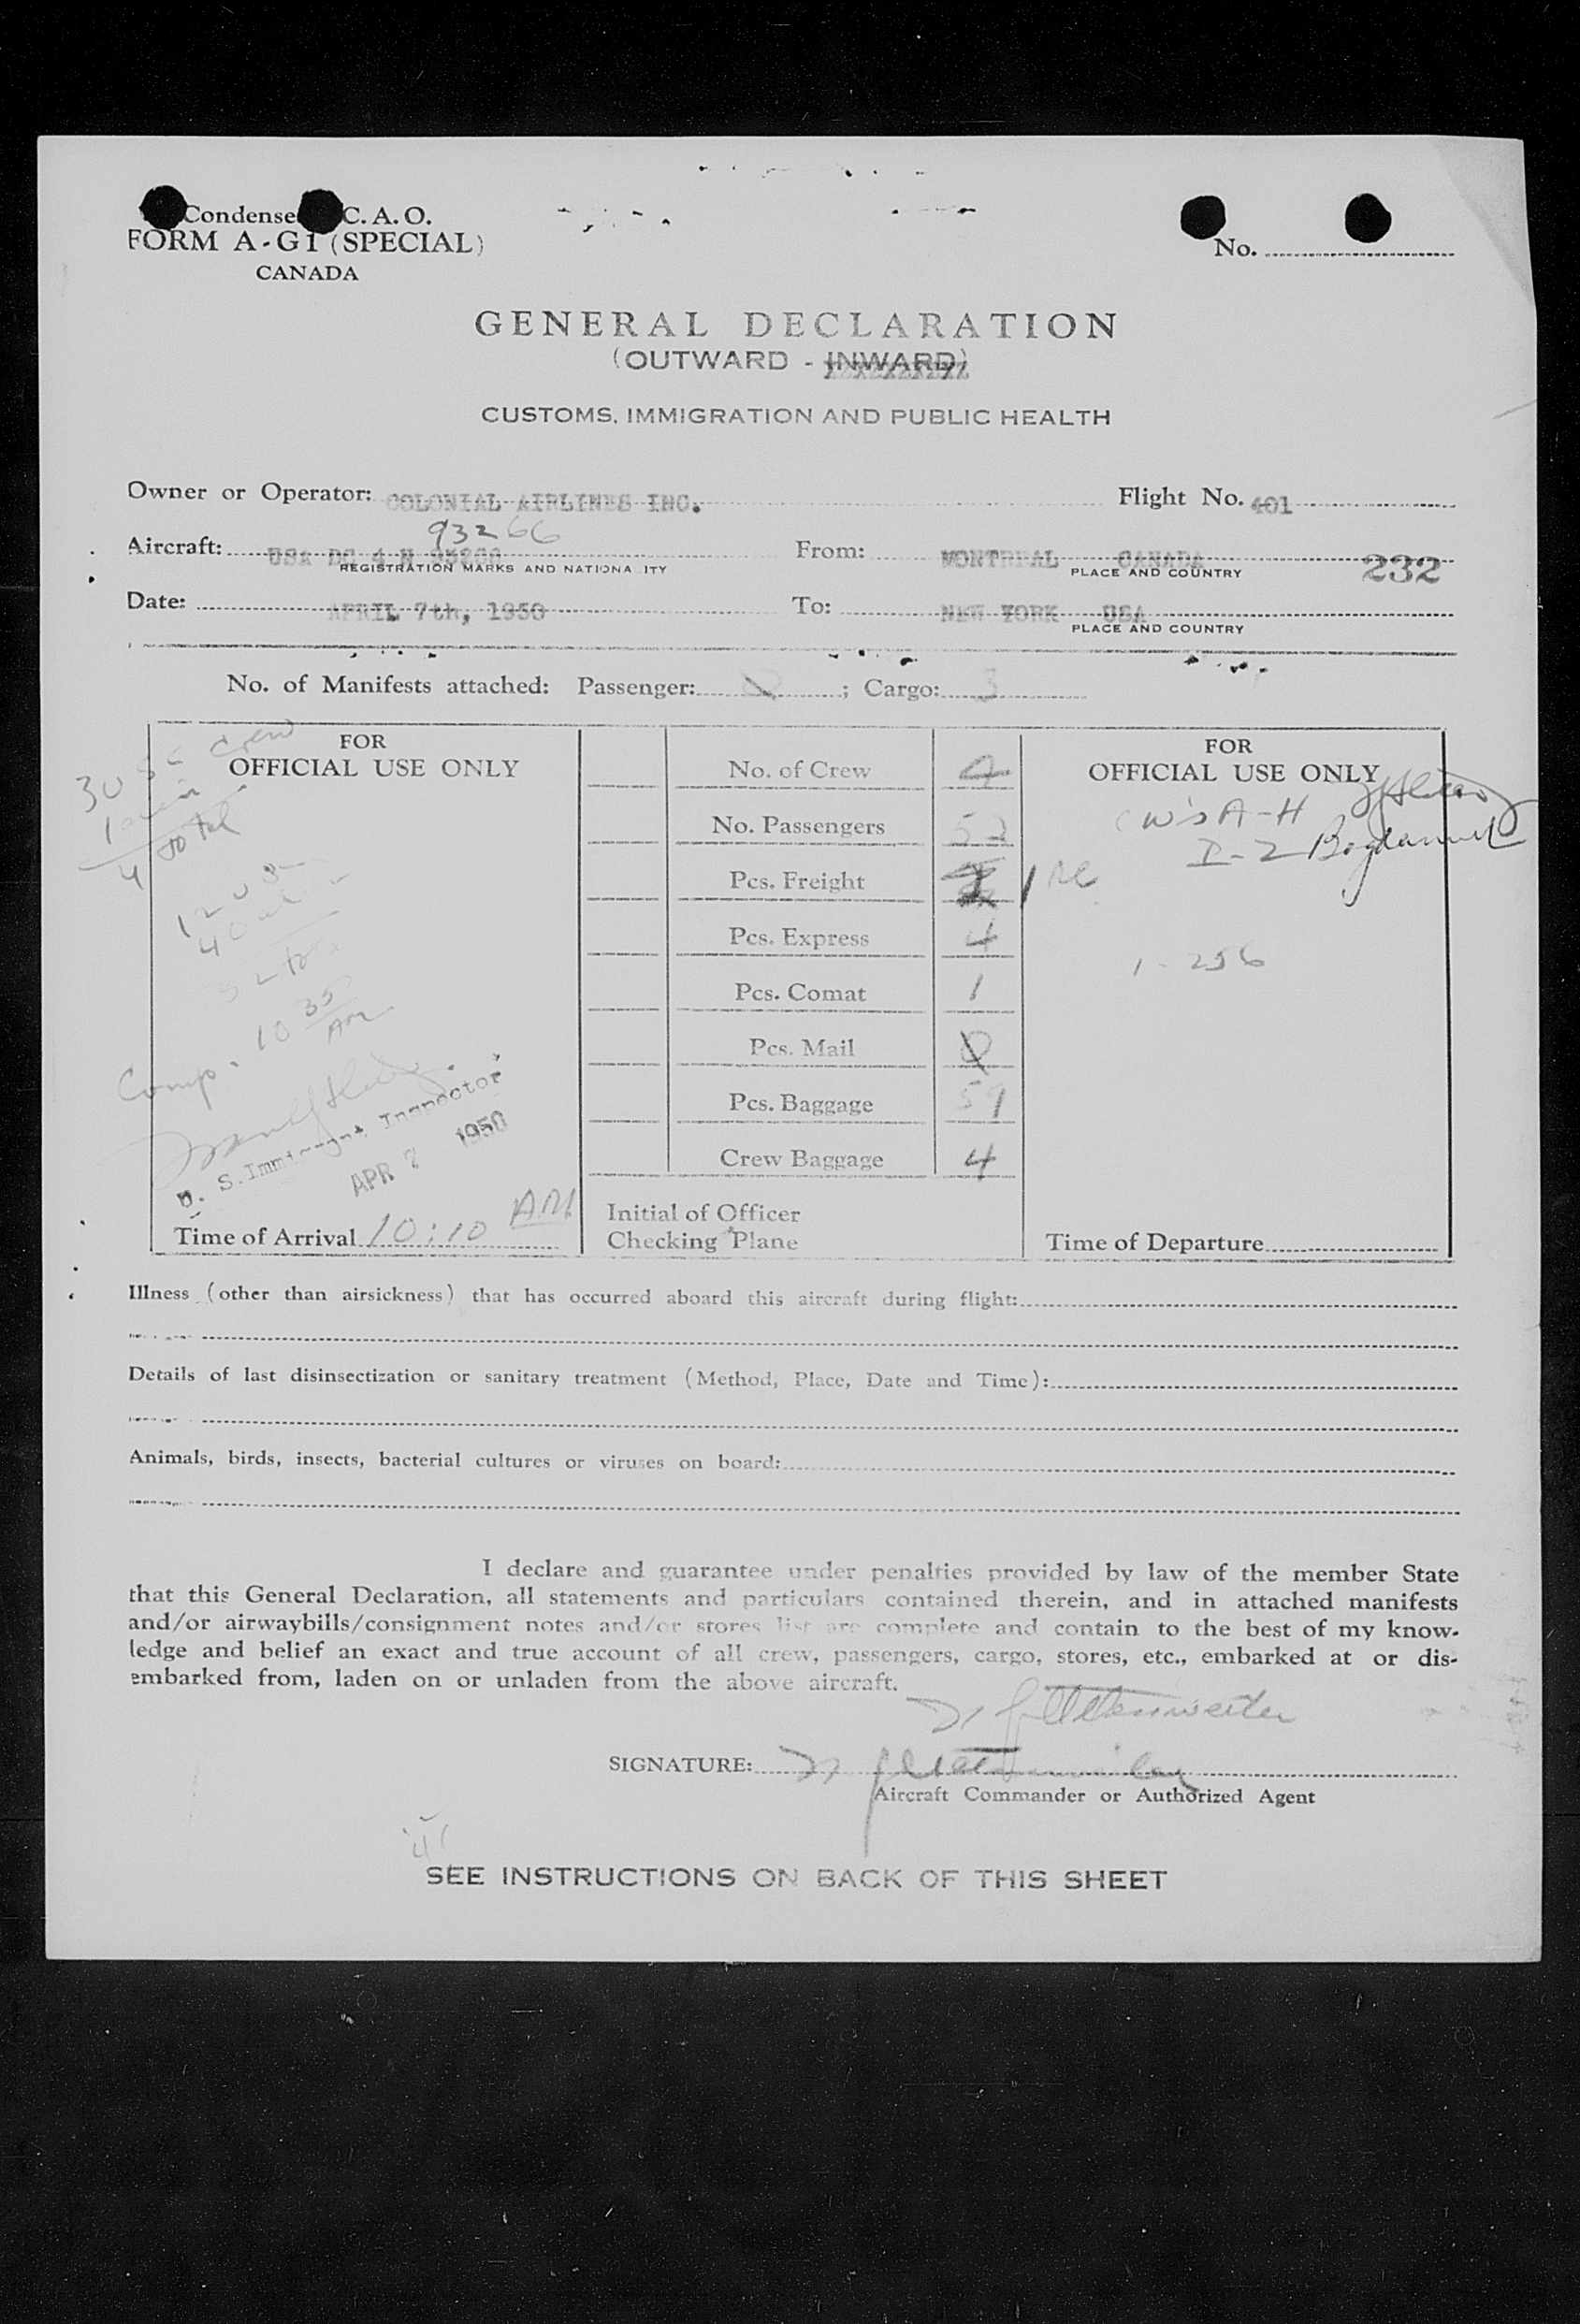 Condense C. A. O.
FORM A-G1 (SPECIAL)
CANADA
No.
GENERAL DECLARATION
(OUTWARD - INWARD)
CUSTOMS, IMMIGRATION AND PUBLIC HEALTH
Owner or Operator: COLONIAL AIRLINES INC. Flight No. 401
93266
Aircraft: USA DC 4 N From: MONTREAL CANADA 232
REGISTRATION MARKS AND NATIONA ITY PLACE AND COUNTRY
Date: APRIL 7th, 1950 To: NEW YORK USA
PLACE AND COUNTRY
No. of Manifests attached: Passenger: ; Cargo: 3
FOR
OFFICIAL USE ONLY
30 crew
1
4 total
10 35 AM
Comp.
U. S. Immigrant Inspector
APR 7 1950
Time of Arrival 10:10 AM
No. of Crew 4
No. Passengers 52
Pcs. Freight 1
Pcs. Express 4
Pcs. Comat 1
Pcs. Mail 0
Pcs. Baggage 59
Crew Baggage 4
Initial of Officer
Checking Plane
FOR
OFFICIAL USE ONLY
W's A-H
I-Z
1-256
Time of Departure
Illness (other than airsickness) that has occurred aboard this aircraft during flight:
Details of last disinsectization or sanitary treatment (Method, Place, Date and Time):
Animals, birds, insects, bacterial cultures or viruses on board:
I declare and guarantee under penalties provided by law of the member State
that this General Declaration, all statements and particulars contained therein, and in attached manifests
and/or airwaybills/consignment notes and/or stores list are complete and contain to the best of my know-
ledge and belief an exact and true account of all crew, passengers, cargo, stores, etc., embarked at or dis-
embarked from, laden on or unladen from the above aircraft.
SIGNATURE:
Aircraft Commander or Authorized Agent
SEE INSTRUCTIONS ON BACK OF THIS SHEET